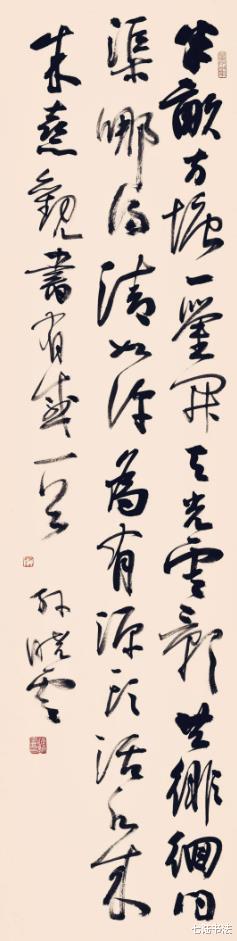 半畝方塘一鑒開天光雲影共徘徊問
渠哪得清如許為有源頭活水來
朱熹觀書有感一首
孫曉雲